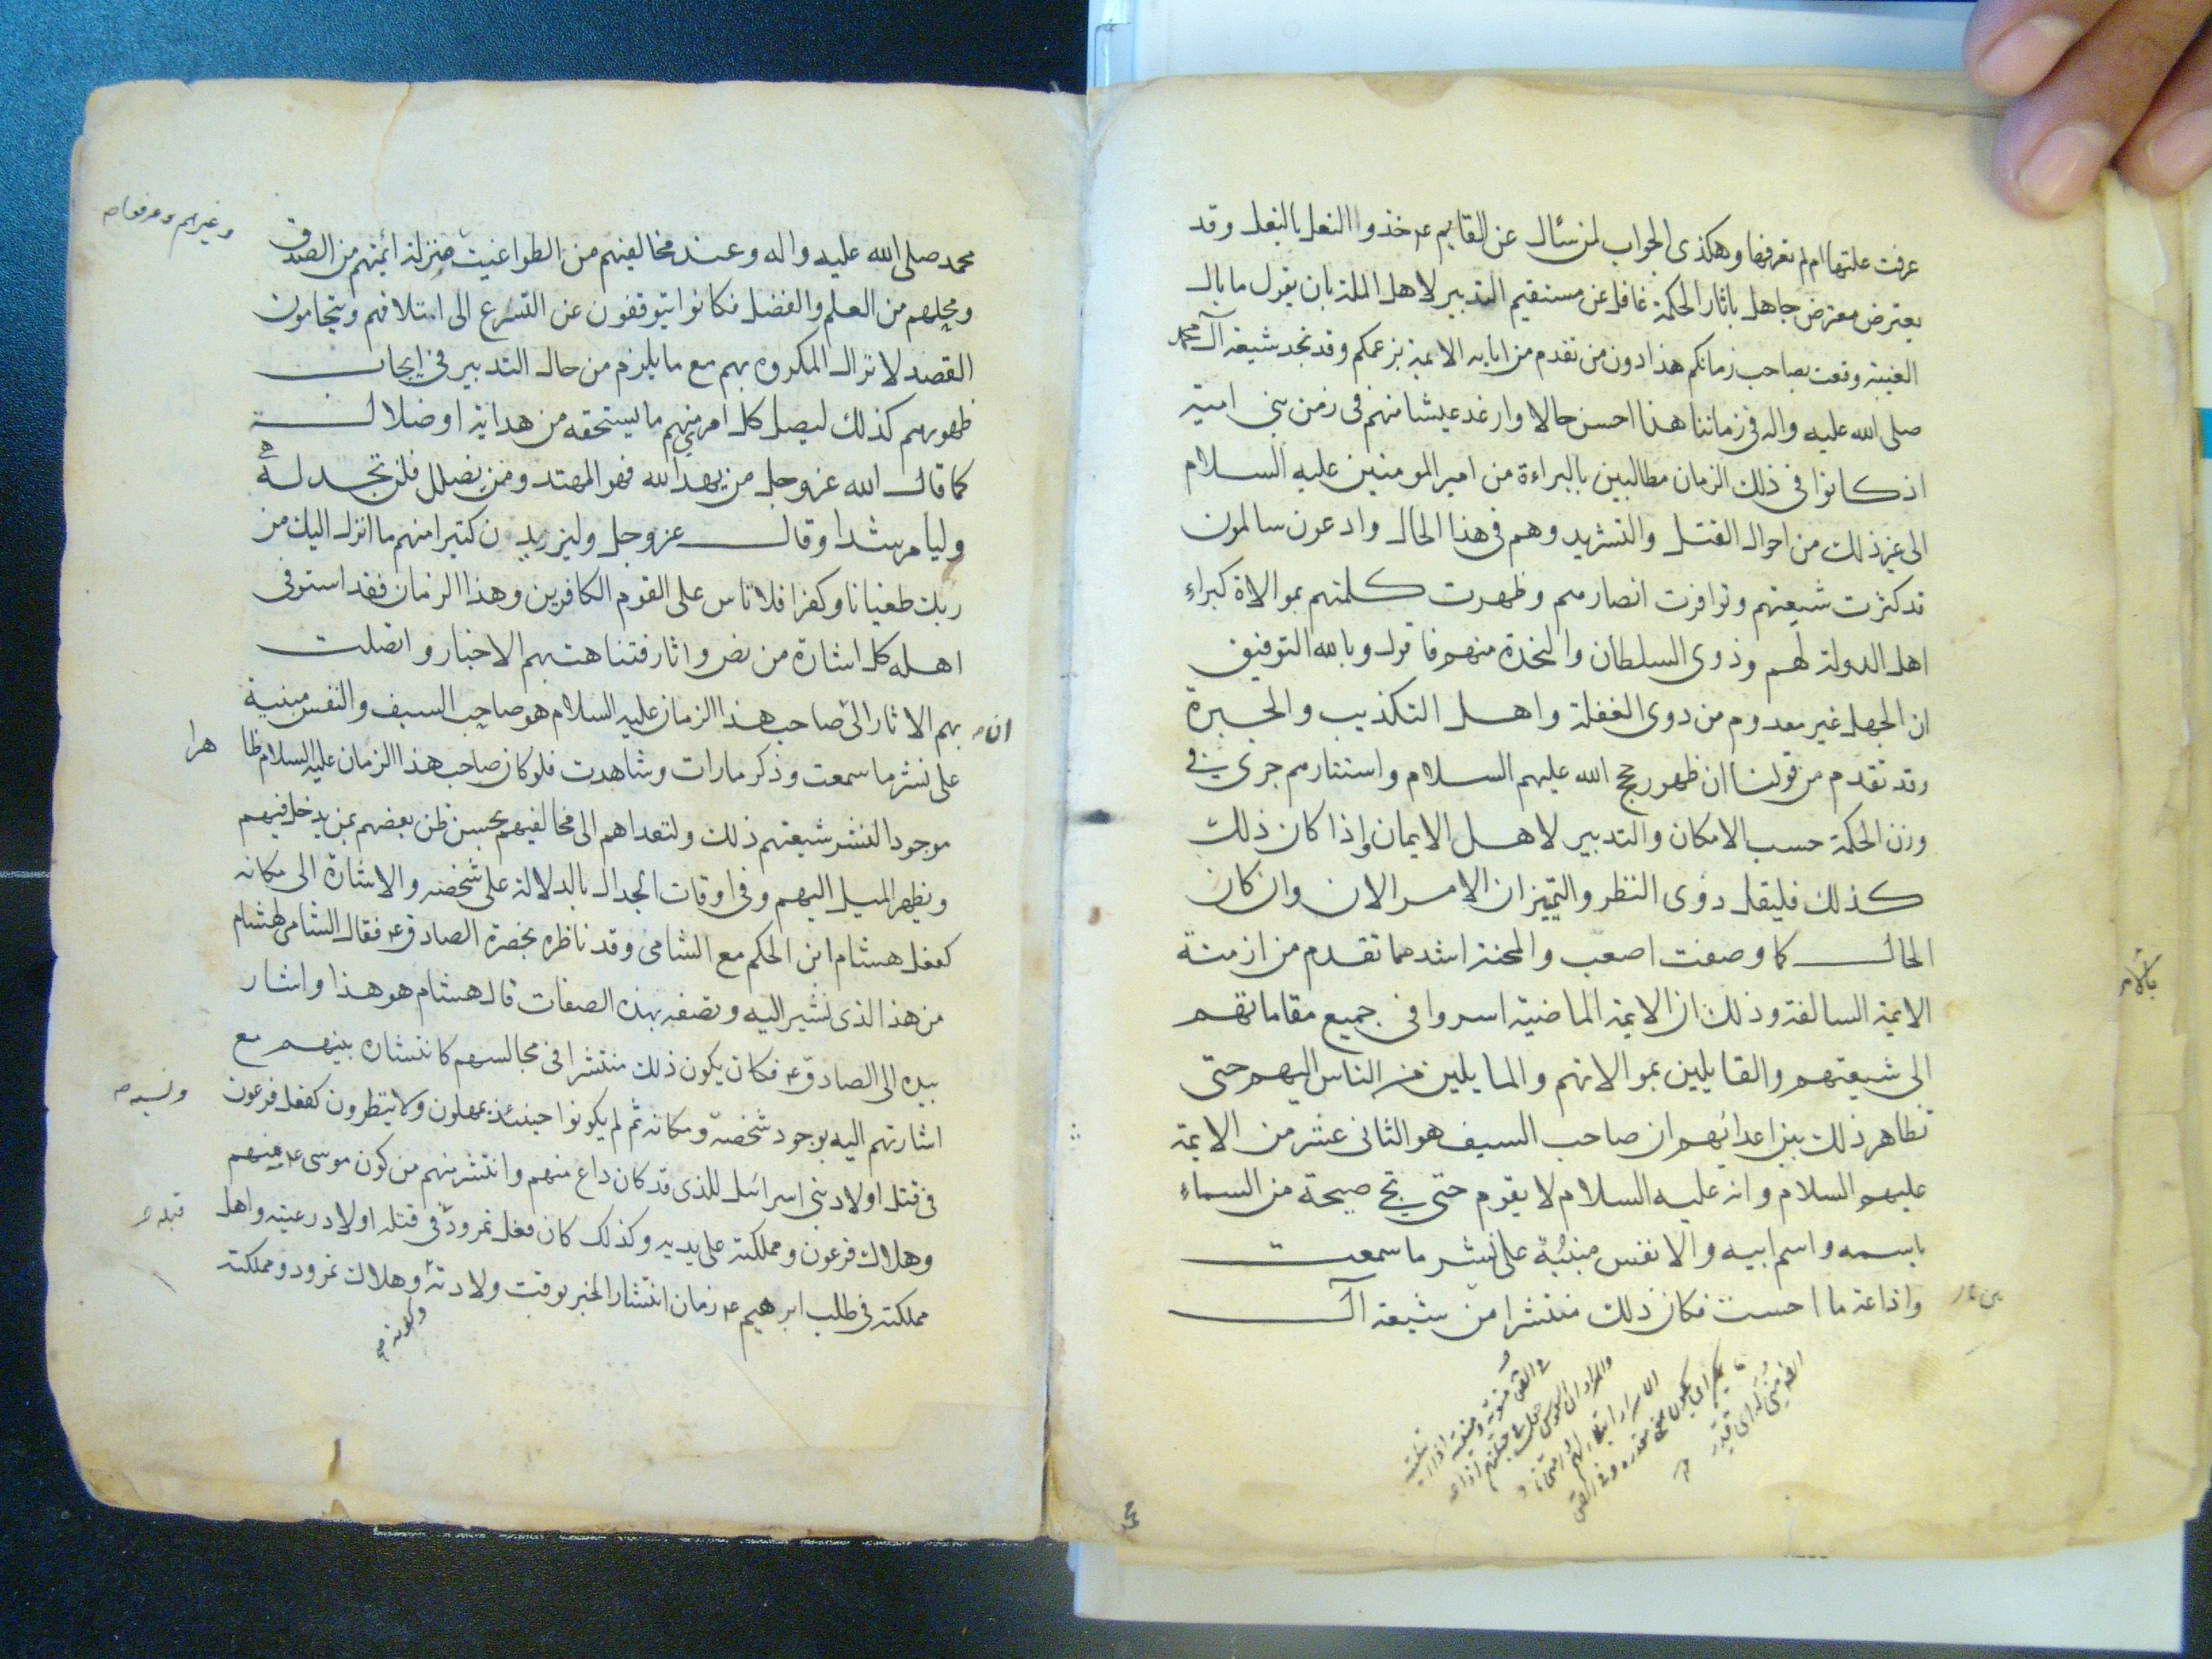 عرفت علتها ام لم تعرفها وهكذى الجواب لمن سئال عن القايم ع خذوا النعل بالنعل وقد
يعترض معترض جاهل باثار الحكمة غافل عن مستقيم التدبير لاهل الملة بان يقول ما بال
الغيبة وقعت بصاحب زمانكم هذا دون من تقدم من ابايه الايمة بزعمكم وقد نجد شيعة آل محمد
صلى الله عليه واله فى زماننا هذا احسن حالا وارغد عيشا منهم فى زمن بنى امية
اذ كانوا فى ذلك الزمان مطالبين بالبراءة من امير المومنين عليه السلام
الى غير ذلك من احوال القتل والتشريد وهم فى هذا الحال وادعون سالمون
قد كثرت شيعتهم وتوافرت انصارهم وظهرت كلمتهم بموالاة كبراء
اهل الدولة لهم وذوى السلطان والنجدة منهم فاقول وبالله التوفيق
ان الجهل غير معدوم من ذوى الغفلة واهل التكذيب والحيرة
وقد تقدم من قولنا ان ظهور حجج الله عليهم السلام واستتارهم جرى فى
وزن الحكمة حسب الامكان والتدبير لاهل الايمان واذا كان ذلك
كذلك فليقل ذوى النظر والتمييز ان الامر الان وان كان
الحال كما وصفت اصعب والمحنة اشد مما تقدم من ازمنة
الايمة السالفة وذلك ان الايمة الماضية اسروا فى جميع مقاماتهم
الى شيعتهم والقايلين بموالاتهم والمايلين من الناس اليهم حتى
تظاهر ذلك بين اعدائهم ان صاحب السيف هو الثانى عشر من الايمة
عليهم السلام وانه عليه السلام لا يقوم حتى تجئ صيحة من السماء
باسمه واسم ابيه والانفس منبئة على نشر ما سمعت
واذاعة ما احست فكان ذلك منتشرا من شيعة آل
محمد
محمد صلى الله عليه واله وعند مخالفيهم من الطواغيت منزلة ائمتهم من الصدق
وغيرهم وعرفوا
ومحلهم من العلم والفضل فكانوا يتوقفون عن التسرع الى اتلافهم ويتحامون
القصد لانزال المكروه بهم مع ما يلزم من حال التدبير فى ايجاب
ظهورهم كذلك ليصل كل امرء منهم ما يستحقه من هداية او ضلالة
كما قال الله عز وجل من يهد الله فهو المهتد ومن يضلل فلن تجد له
وليا مرشدا وقال عز وجل وليزيدن كثيرا منهم ما انزل اليك من
ربك طغيانا وكفرا فلا تاس على القوم الكافرين وهذا الزمان فقد استوفى
اهله كل اشارة من نص واثار فتناهت بهم الاخبار واتصلت
بهم الاثار الى صاحب هذا الزمان عليه السلام هو صاحب السيف والنفس مبنية
ان
على نشر ما سمعت وذكر ما رات وشاهدت فلو كان صاحب هذا الزمان عليه السلام ظا
هرا
موجودا لنشر شيعتهم ذلك ولتعداهم الى مخالفيهم بحسن ظن بعضهم بمن يدخل فيهم
ويظهر الميل اليهم وفى اوقات الجدال بالدلالة على شخصه والاشارة الى مكانه
كفعل هشام ابن الحكم مع الشامى وقد ناظره بحضرة الصادق ع فقال الشامى لهشام
من هذا الذى تشير اليه وتصفه بهذه الصفات قال هشام هو هذا واشار
بيده الى الصادق ع فكان يكون ذلك منتشرا فى مجالسهم كانتشاره بينهم مع
اشارتهم اليه بوجود شخصه ومكانه ثم لم يكونوا حينئذ يمهلون ولا ينتظرون كفعل فرعون
ونسبه
فى قتل اولاد بنى اسرائيل للذى قد كان ذاع منهم وانتشر منهم من كون موسى ع منهم
وهلاك فرعون ومملكته على يديه وكذلك كان فعل نمرود فى قتله اولاد رعيته واهل
قبله
مملكته فى طلب ابرهيم ع زمان انتشار الخبر بوقت ولادته وهلاك نمرود ومملكته
وكونه